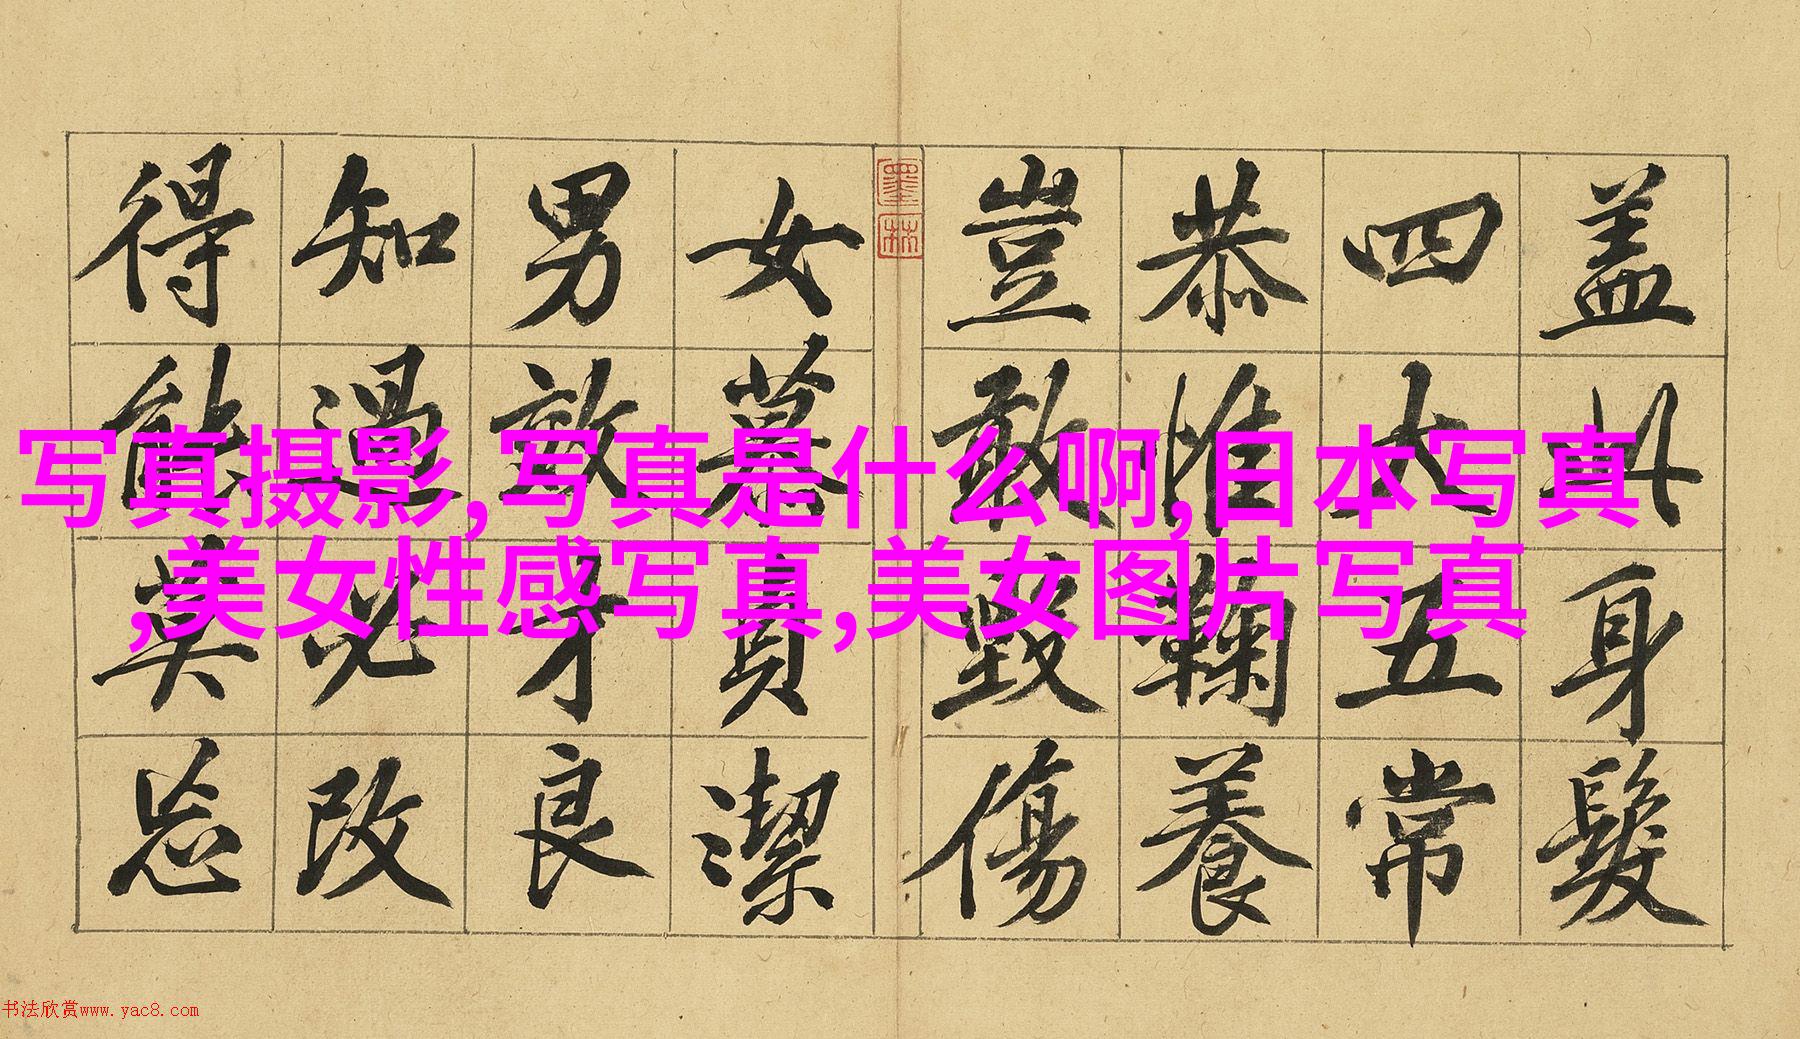 盖此身髮
四大五常
恭惟鞠養
豈敢毀傷
墨林
女慕貞潔
男效才良
知過必改
得能莫忘
写真摄影,写真是什么啊,日本写真
,美女性感写真,美女图片写真
书法欣赏www.yac8.com